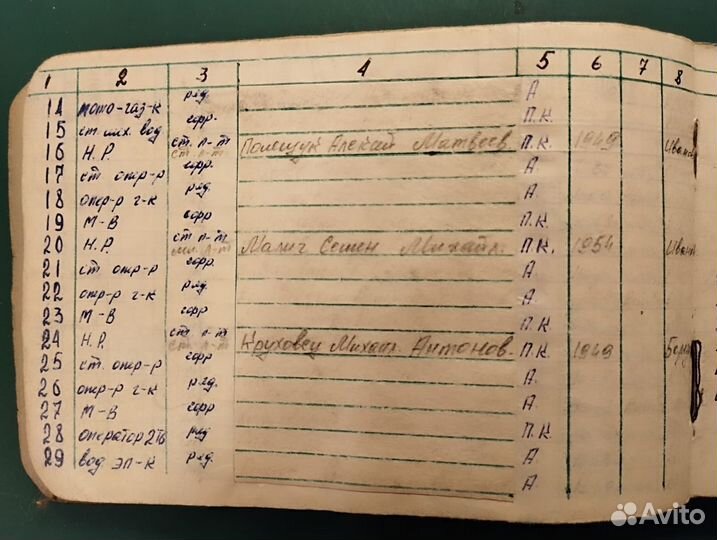 1 2 3 4 5 6 7 8
14 мото-газ-к ряд. А
15 ст. мх. вод ефр. П.К.
16 Н.Р. ст. л-т Полещук Алексай Матвеев. П.К. 1949 Иван
17 ст опер-р ефр. А
18 опер-р г-к ряд. А
19 М-В ефр П.К.
20 Н.Р. ст л-т Малич Семен Михайл. П.К. 1954 Иван
21 ст опер-р ефр. А
22 опер-р г-к ряд. А
23 М-В ефр П.К
24 Н.Р. ст л-т Круховец Михаил Антонов. П.К. 1949
25 ст. опер-р ефр А.
26 опер-р г-к ряд. А
27 М-В ефр П.К.
28 оператор ряд А
29 вод эп-к ряд. А
Avito